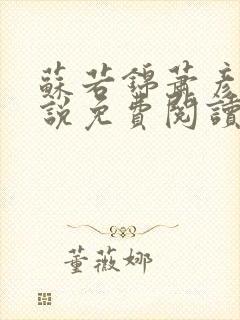 蘇若錦蕭彥
說免費閱讀
董薇娜